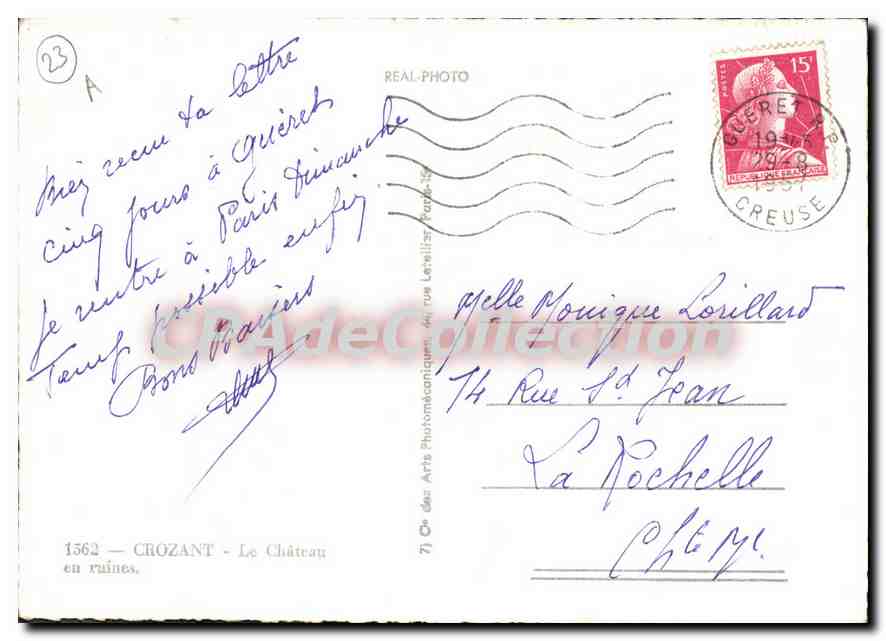 23
A
Bien recu ta lettre
cinq jours à Guéret
je rentre à Paris Dimanche
Temps possible enfin
Bons Baisers
REAL-PHOTO
POSTES
15F
REPUBLIQUE FRANCAISE
GUERET R.P
19
29-8
1957
CREUSE
Melle Monique Lorillard
14 Rue St Jean
La Rochelle
Chte Me.
7) Cie des Arts Photomécaniques, 44, rue Letellier, Paris-15e
1562 — CROZANT - Le Château
en ruines.
CPAdeCollection